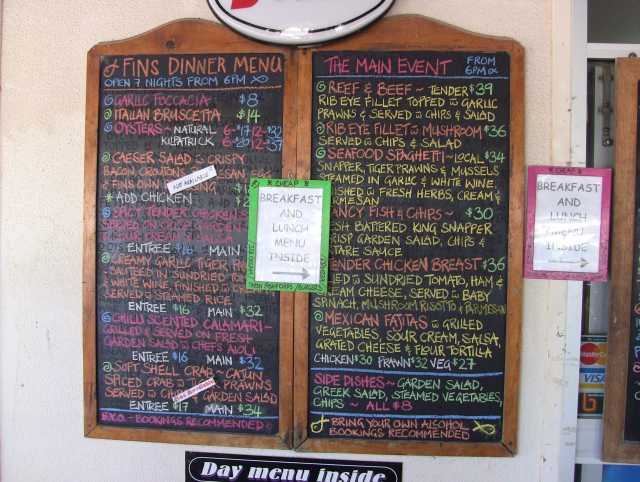 FINS DINNER MENU
OPEN 7 NIGHTS FROM 6PM
GARLIC FOCCACIA $8
ITALIAN BRUSCETTA $14
OYSTERS ~ NATURAL 6-$17 12-$32
KILPATRICK 6-$20 12-$37
CAESER SALAD CRISPY
BACON CROUTONS
FINS OWN
NOT AVAILABLE
* ADD CHICKEN
TENDER CHICKEN
SERVED
GARDEN SALAD
ENTREE $16 MAIN
CREAMY GARLIC TIGER
SAUTEED IN SUNDRIED
& WHITE WINE, FINISHED
SERVED STEAMED RICE
ENTREE $16 MAIN $32
CHILLI SCENTED CALAMARI ~
GRILLED & SERVED ON FRESH
GARDEN SALAD CHEFS AOLI
ENTREE $16 MAIN $32
SOFT SHELL CRAB ~ CAJUN
SPICED CRAB PRAWNS
SERVED GARDEN SALAD
ENTREE $17 MAIN $34
B.Y.O. - BOOKINGS RECOMMENDED
* CHEAP *
BREAKFAST
AND
LUNCH
MENU
INSIDE
THE MAIN EVENT FROM
6PM
REEF & BEEF ~ TENDER $39
RIB EYE FILLET TOPPED GARLIC
PRAWNS & SERVED CHIPS & SALAD
RIB EYE FILLET MUSHROOM $36
SERVED CHIPS & SALAD
SEAFOOD SPAGHETTI ~ LOCAL $34
SNAPPER, TIGER PRAWNS & MUSSELS
STEAMED IN GARLIC & WHITE WINE,
FRESH HERBS, CREAM &
PARMESAN
FISH & CHIPS ~ $30
BATTERED KING SNAPPER
GARDEN SALAD, CHIPS &
SAUCE
TENDER CHICKEN BREAST $36
SUNDRIED TOMATO, HAM &
CHEESE, SERVED BABY
SPINACH, MUSHROOM RISOTTO & PARMESAN
MEXICAN FAJITAS GRILLED
VEGETABLES, SOUR CREAM, SALSA,
GRATED CHEESE & FLOUR TORTILLA
CHICKEN $30 PRAWN $32 VEG $27
SIDE DISHES ~ GARDEN SALAD,
GREEK SALAD, STEAMED VEGETABLES,
CHIPS ~ ALL $8
BRING YOUR OWN ALCOHOL
BOOKINGS RECOMMENDED
* CHEAP *
BREAKFAST
AND
LUNCH
INSIDE
MasterCard
VISA
Day menu inside